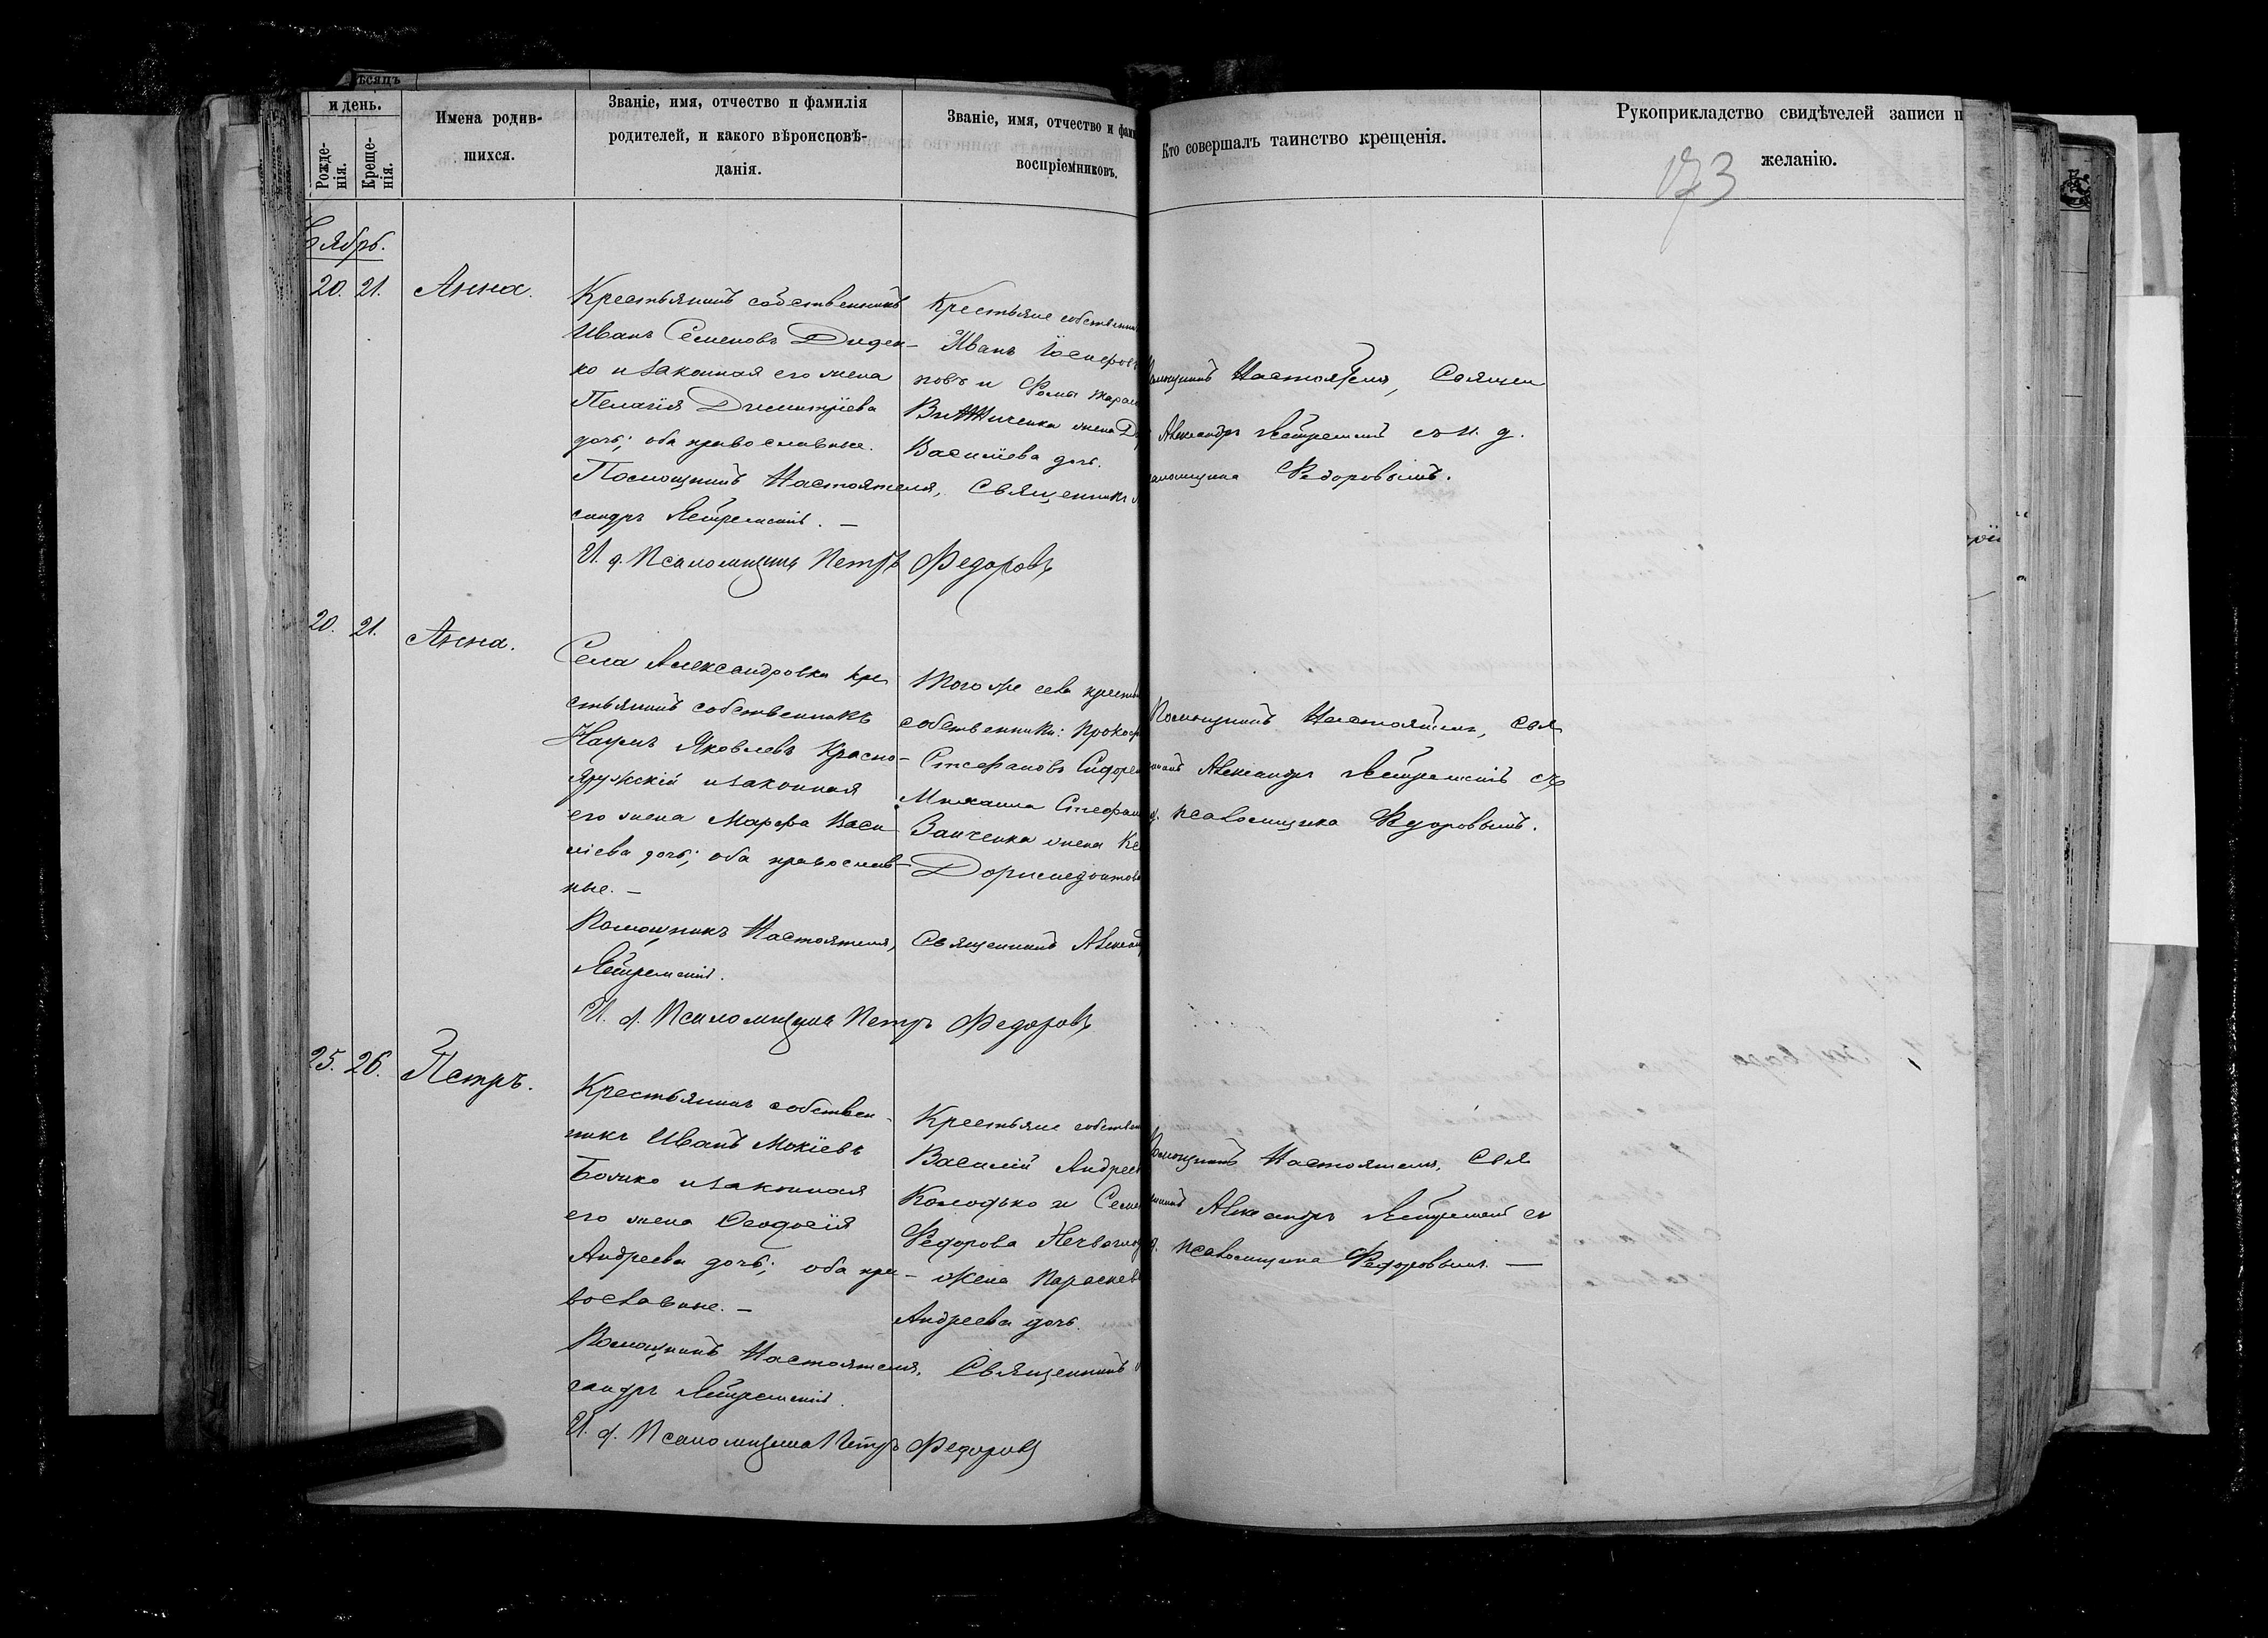 ѣсяцъ
и день.
Рожде-
нія.
Креще-
нія.
Имена родив-
шихся.
Званіе, имя, отчество и фамилія
родителей, и какого вѣроисповѣ-
данія.
Званіе, имя, отчество и фам
воспріемниковъ.
Кто совершалъ таинство крещенія.
Рукоприкладство свидѣтелей записи п
желанію.
173
ябрь.
20. 21. Анна.
Крестьянинъ собственникъ
Иванъ Семеновъ Диден-
ко и законная его жена
Пелагія Димитріева
дочь; оба православные.
Помощникъ Настоятеля, Священникъ
сандръ
И. д. Псаломщика Петръ Федоровъ
Крестьяне собственни
Иванъ
новъ и Ѳомы
жена
Василіева дочь.
Настоятеля, Священ
Александръ съ и. д.
Федоровымъ.
20. 21. Анна.
Села Александровки кре
стьянинъ собственникъ
Наумъ Яковлевъ Красно-
яружскій и законная
его жена Марфа Васи
ліева дочь; оба православ-
ные. —
Помощникъ Настоятеля, Священникъ Александ
И. д. Псаломщика Петръ Федоровъ
Того же села крестья
собственники: Прокоф
Стефановъ Сидорен
Михаила Стефан
Заиченка жена Ке
Помощникъ Настоятеля, Свя
Александръ съ
псаломщика Федоровымъ.
25. 26. Петръ.
Крестьянинъ собствен-
никъ Иванъ Мокіевъ
Божко и законная
его жена Ѳеодосія
Андреева дочь; оба пра-
вославные. —
Помощникъ Настоятеля, Священникъ
сандръ
И. д. Псаломщика Петръ Федоровъ
Крестьяне собствен
Василій Андреев
Колодько и Семе
Федорова
жена Параскев
Андреева дочь.
Помощникъ Настоятеля, Свя
Александръ съ
псаломщика Федоровымъ. —